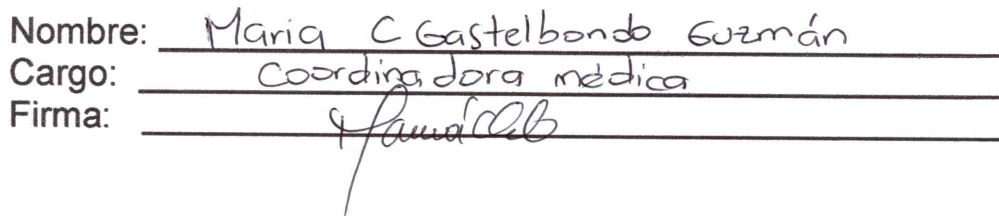 Nombre: Maria C Gastelbondo Guzmán
Cargo: Coordinadora médica
Firma: